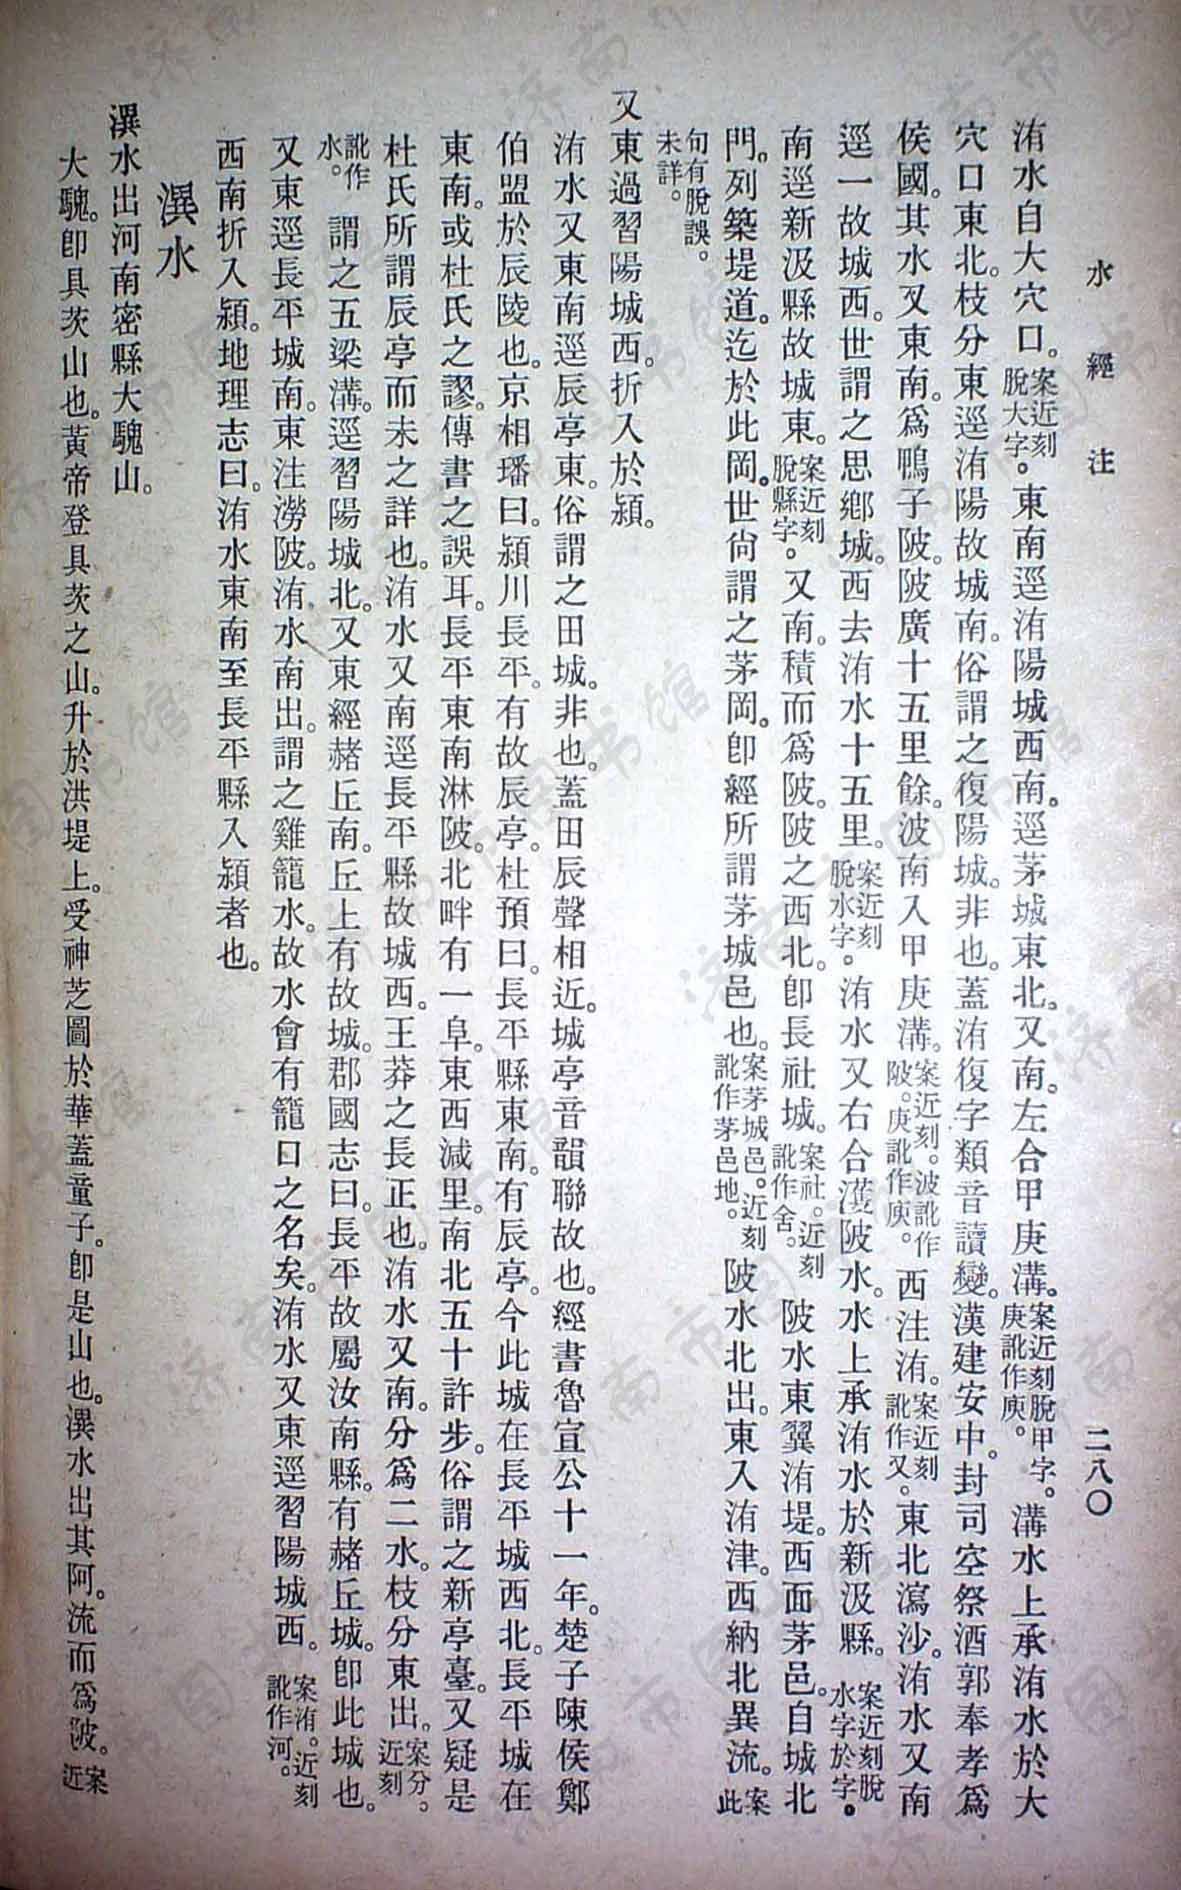 水經注
二八〇
洧水自大穴口。案近刻脫大字。東南逕洧陽城西南。逕茅城東北。又南。左合甲庚溝。案近刻脫甲字。庚訛作庾。溝水上承洧水於大
穴口東北。枝分東逕洧陽故城南。俗謂之復陽城。非也。蓋洧復字類音讀變。漢建安中。封司空祭酒郭奉孝爲
侯國。其水又東南。爲鴨子陂。陂廣十五里餘。波南入甲庚溝。案近刻。波訛作陂。庚訛作庾。西注洧。案近刻訛作又。東北瀉沙。洧水又南
逕一故城西。世謂之思鄉城。西去洧水十五里。案近刻脫水字。洧水又右合濩陂水。水上承洧水於新汲縣。案近刻脫水字於字。
南逕新汲縣故城東。案近刻脫縣字。又南。積而爲陂。陂之西北。卽長社城。案社。近刻訛作舍。陂水東翼洧堤。西面茅邑。自城北
門。列築堤道。迄於此岡。世尙謂之茅岡。卽經所謂茅城邑也。案茅城邑。近刻訛作茅邑地。陂水北出。東入洧津。西納北異流。案此
句有脫誤。未詳。
又東過習陽城西。折入於潁。
洧水又東南逕辰亭東。俗謂之田城。非也。蓋田辰聲相近。城亭音韻聯故也。經書魯宣公十一年。楚子陳侯鄭
伯盟於辰陵也。京相璠曰。潁川長平。有故辰亭。杜預曰。長平縣東南。有辰亭。今此城在長平城西北。長平城在
東南。或杜氏之謬。傳書之誤耳。長平東南淋陂。北畔有一阜。東西減里。南北五十許步。俗謂之新亭臺。又疑是
杜氏所謂辰亭而未之詳也。洧水又南逕長平縣故城西。王莽之長正也。洧水又南。分爲二水。枝分東出。案分。近刻
訛作水。謂之五梁溝。逕習陽城北。又東經赭丘南。丘上有故城。郡國志曰。長平故屬汝南縣。有赭丘城。卽此城也。
又東逕長平城南。東注澇陂。洧水南出。謂之雞籠水。故水會有籠口之名矣。洧水又東逕習陽城西。案洧。近刻訛作河。
西南折入潁。地理志曰。洧水東南至長平縣入潁者也。
潩水
潩水出河南密縣大騩山。
大騩。卽具茨山也。黃帝登具茨之山。升於洪堤上。受神芝圖於華蓋童子。卽是山也。潩水出其阿。流而爲陂。案近